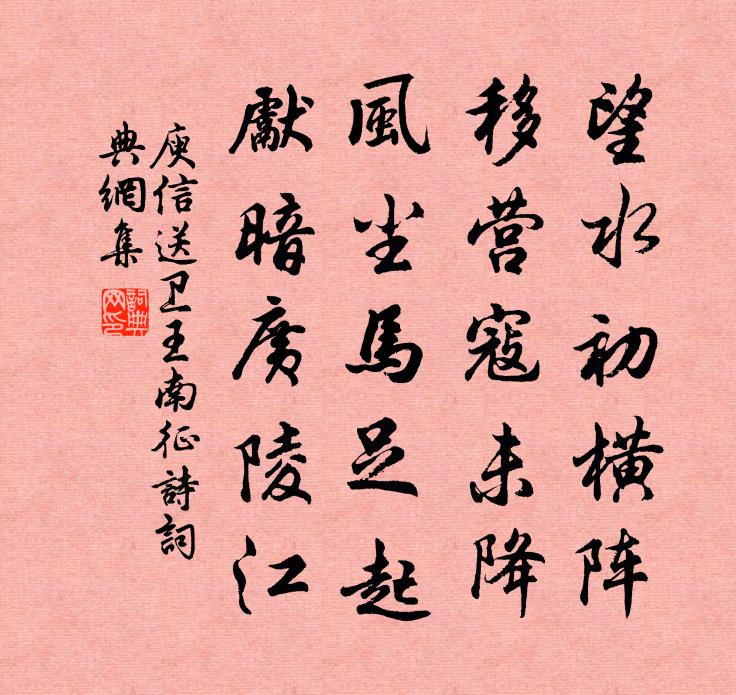 望水初橫阵
移营寇未降
風尘馬足起
獻暗廣陵江
庾信送卫王南征詩詞
典網集
詞典
网印